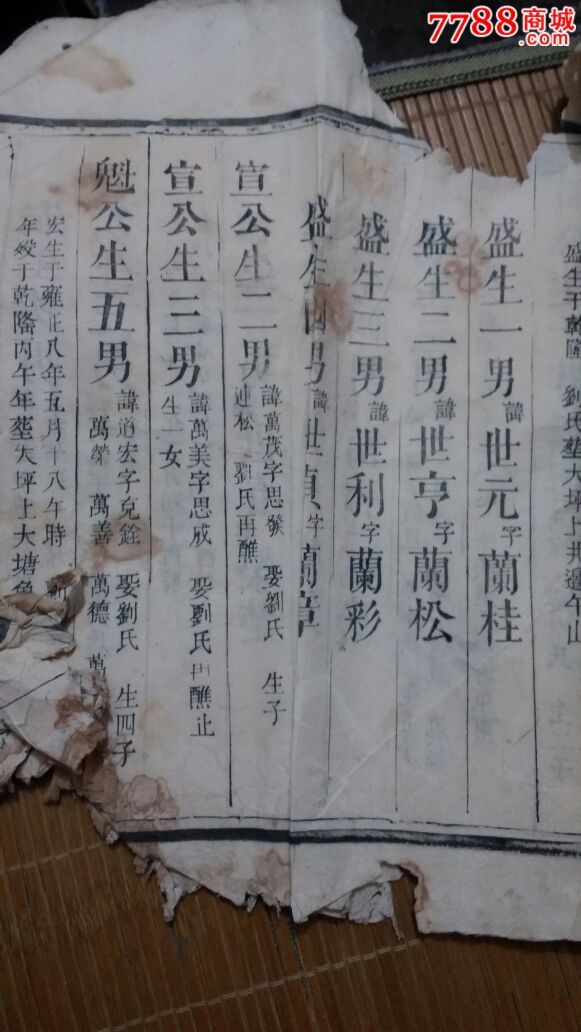 7788商城
.com
盛生于乾隆 劉氏塟大坪上井邊午山
盛生一男諱世元字蘭桂
盛生二男諱世亨字蘭松
盛生三男諱世利字蘭彩
盛生四男諱世貞字蘭章
宣公生二男諱萬茂字思發 娶劉氏 生子
連松 劉氏再醮
宣公生三男諱萬美字思成 娶劉氏再醮止
生一女
魁公生五男諱道宏字克銓 娶劉氏 生四子
萬榮 萬善 萬德 萬
宏生于雍正八年五月十八午時
年殁于乾隆丙午年塟大坪上大塘